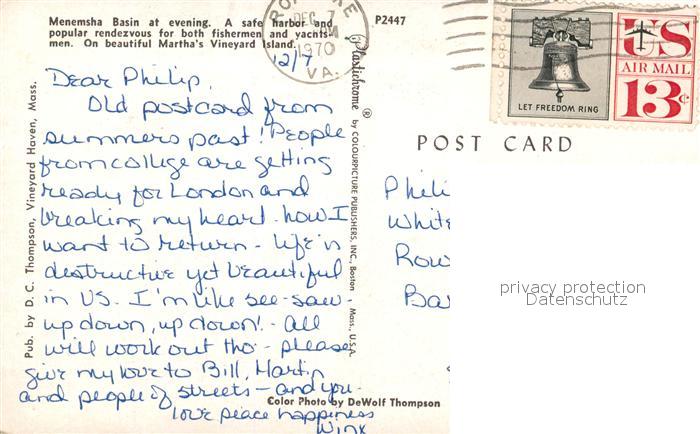 Menemsha Basin at evening. A safe harbor and
popular rendezvous for both fishermen and yachts-
men. On beautiful Martha's Vineyard Island.
P2447
ROANOKE
DEC 7
1970
VA.
12/7
US
AIR MAIL
13c
LET FREEDOM RING
POST CARD
Dear Philip,
Old postcard from
summers past! People
from college are getting
ready for London and
breaking my heart. how I
want to return - life is
destructive yet beautiful
in US. I'm like see-saw -
up down, up down! - all
will work out tho - please
give my love to Bill, Martin
and people of streets - and you.
love peace happiness
Wink
Pub. by D. C. Thompson, Vineyard Haven, Mass.
Plastichrome ® by COLOURPICTURE PUBLISHERS, INC., Boston Mass., U.S.A.
Color Photo by DeWolf Thompson
Phili
White
Row
Ba
privacy protection
Datenschutz